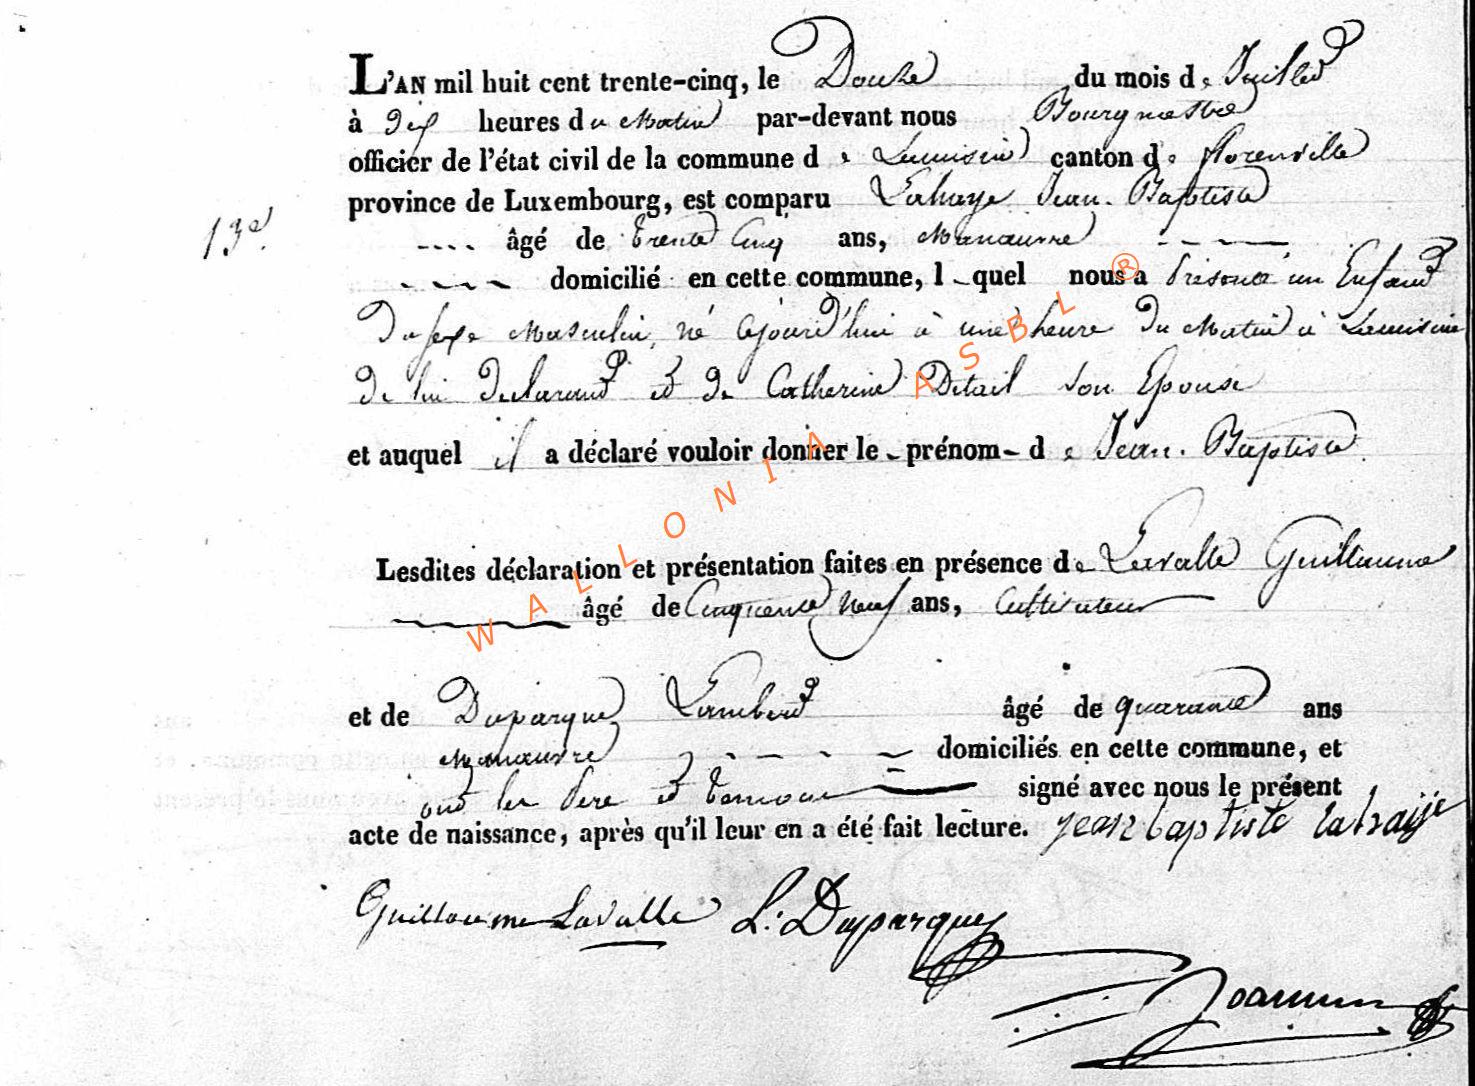 L'AN mil huit cent trente-cinq, le Douze du mois de Juillet
à dix heures du Matin par-devant nous Bourgmestre
officier de l'état civil de la commune de canton de florenville
province de Luxembourg, est comparu Lahaye Jean-Baptiste
13e
âgé de trente Cinq ans, Manœuvre
domicilié en cette commune, lequel nous a Présenté un Enfant
Du sexe Masculin, né Ajourd'hui à une heure du Matin à
De lui déclarant et de Catherine Detail son Epouse
et auquel il a déclaré vouloir donner le prénom de Jean-Baptiste
Lesdites déclaration et présentation faites en présence de Lavalle Guillaume
âgé de Cinquante Neuf ans, Cultivateur
et de Duparque Lambert âgé de quarante ans
Manœuvre domiciliés en cette commune, et
ont les Père et témoins signé avec nous le présent
acte de naissance, après qu'il leur en a été fait lecture. jean baptiste lahaije
Guillaume Lavalle L. Duparque
WALLONIA ASBL ®